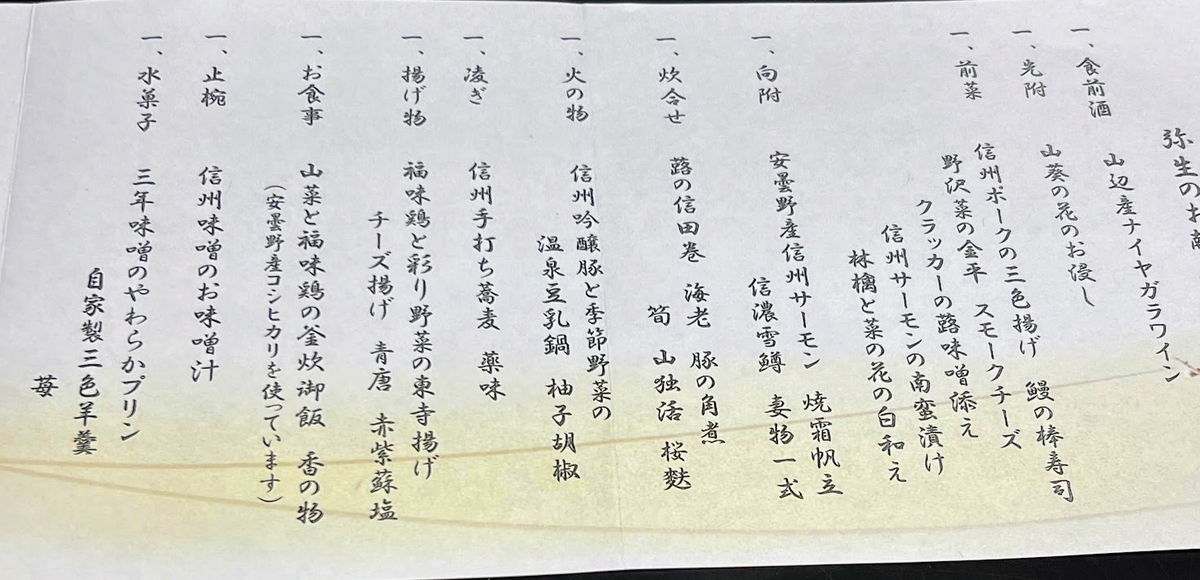 弥生のお献
一、食前酒
山辺産ナイヤガラワイン
一、先附
山葵の花のお浸し
一、前菜
信州ポークの三色揚げ 鰻の棒寿司
野沢菜の金平 スモークチーズ
クラッカーの蕗味噌添え
信州サーモンの南蛮漬け
林檎と菜の花の白和え
一、向附
安曇野産信州サーモン 焼霜帆立
信濃雪鱒 妻物一式
一、炊合せ
蕗の信田巻 海老 豚の角煮
筍 山独活 桜麩
一、火の物
信州吟醸豚と季節野菜の
温泉豆乳鍋 柚子胡椒
一、凌ぎ
信州手打ち蕎麦 薬味
一、揚げ物
福味鶏と彩り野菜の東寺揚げ
チーズ揚げ 青唐 赤紫蘇塩
一、お食事
山菜と福味鶏の釜炊御飯 香の物
(安曇野産コシヒカリを使っています)
一、止椀
信州味噌のお味噌汁
一、水菓子
三年味噌のやわらかプリン
自家製三色羊羹
苺